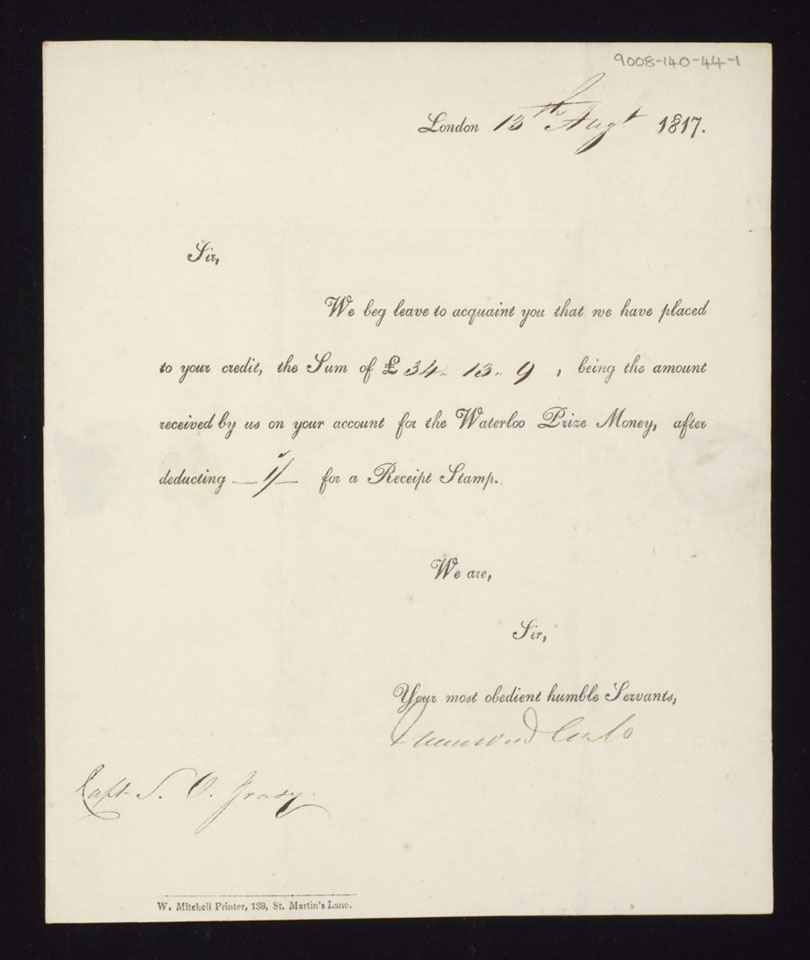 9008-140-44-1
London 13th Augt 1817.
Sir,
We beg leave to acquaint you that we have placed
to your credit, the Sum of £ 34 " 13 " 9 , being the amount
received by us on your account for the Waterloo Prize Money, after
deducting — 1/— for a Receipt Stamp.
We are,
Sir,
Your most obedient humble Servants,
Capt S. O. Grady
W. Mitchell Printer, 138, St. Martin's Lane.